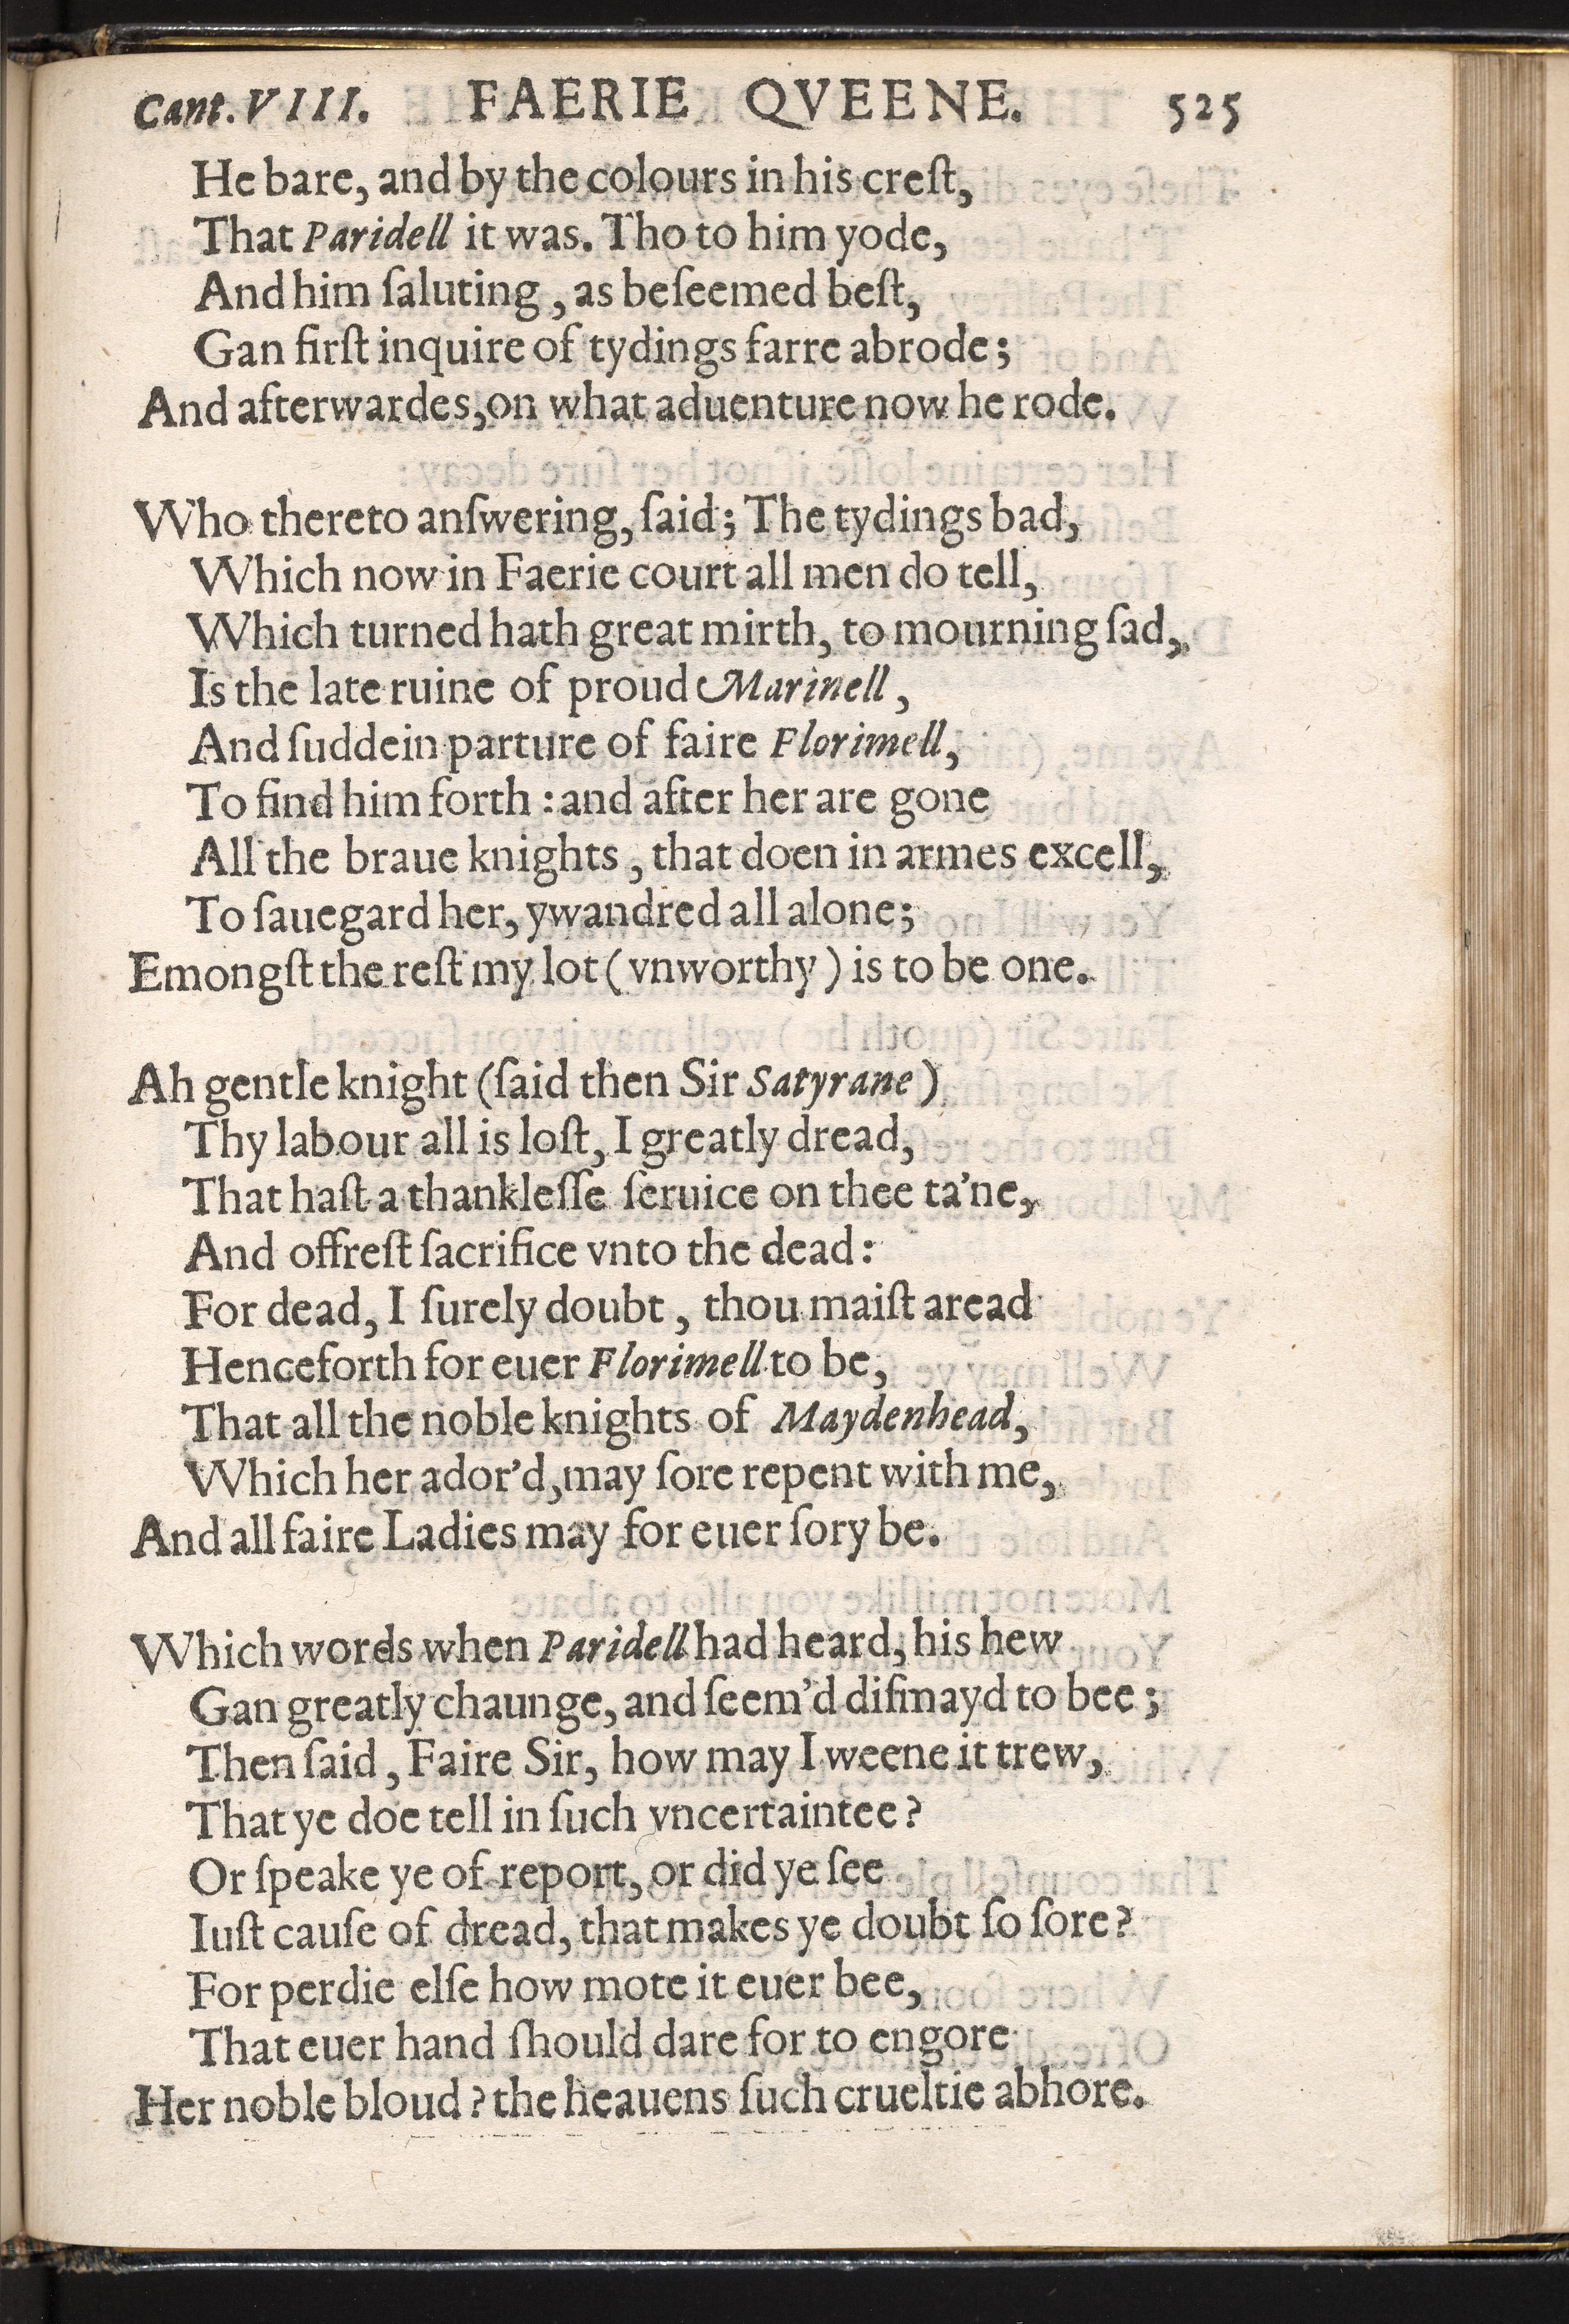 Cant. VIII. FAERIE QVEENE. 525
He bare, and by the colours in his creſt,
That Paridell it was. Tho to him yode,
And him ſaluting, as beſeemed beſt,
Gan firſt inquire of tydings farre abrode;
And afterwardes, on what aduenture now he rode.
Who thereto anſwering, ſaid; The tydings bad,
Which now in Faerie court all men do tell,
Which turned hath great mirth, to mourning ſad,
Is the late ruine of proud Marinell,
And ſuddein parture of faire Florimell,
To find him forth: and after her are gone
All the braue knights, that doen in armes excell,
To ſauegard her, ywandred all alone;
Emongſt the reſt my lot (vnworthy) is to be one.
Ah gentle knight (ſaid then Sir Satyrane)
Thy labour all is loſt, I greatly dread,
That haſt a thankleſſe ſeruice on thee ta'ne,
And offreſt ſacrifice vnto the dead:
For dead, I ſurely doubt, thou maiſt aread
Henceforth for euer Florimell to be,
That all the noble knights of Maydenhead,
Which her ador'd, may ſore repent with me,
And all faire Ladies may for euer ſory be.
Which words when Paridell had heard, his hew
Gan greatly chaunge, and ſeem'd diſmayd to bee;
Then ſaid, Faire Sir, how may I weene it trew,
That ye doe tell in ſuch vncertaintee?
Or ſpeake ye of report, or did ye ſee
Iuſt cauſe of dread, that makes ye doubt ſo ſore?
For perdie elſe how mote it euer bee,
That euer hand ſhould dare for to engore
Her noble bloud? the heauens ſuch crueltie abhore.